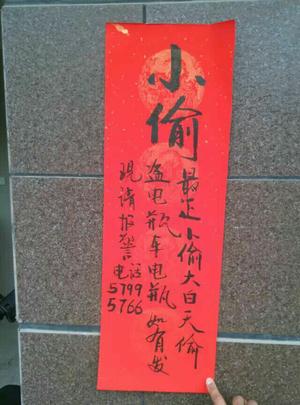 小偷
最近小偷大白天偷
盗电瓶车电瓶如有发
现请报警电话
5799
5766